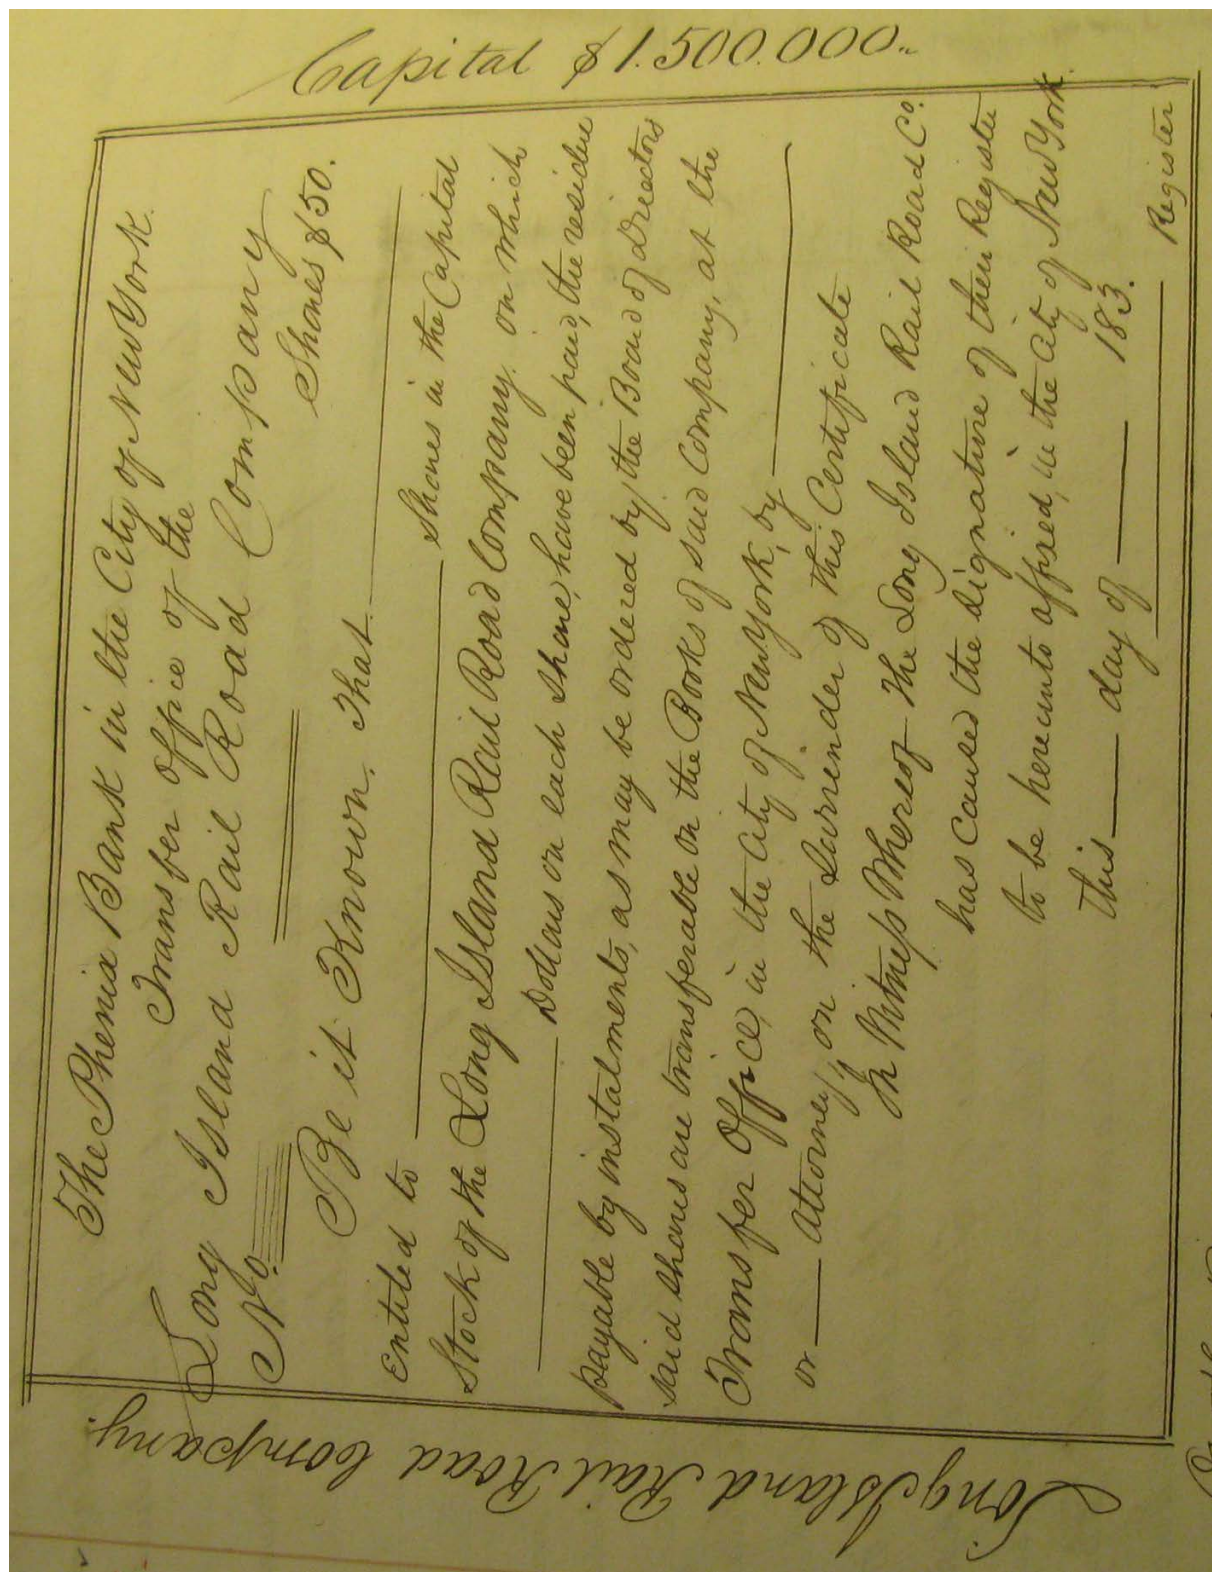 Capital $1.500.000.
Long Island Rail Road Company.
The Phenix Bank in the City of New York.
Transfer office of the
Long Island Rail Road Company
No. Shares $50.
Be it Known. That
Entitled to Shares in the Capital
Stock of the Long Island Rail Road Company. on which
Dollars on each Share, have been paid, the residue
payable by instalments, as may be ordered by the Board of Directors
said shares are transferable on the Books of said Company, at the
Transfer Office, in the City of New York, by
or Attorney, on the Surrender of this Certificate
In Witness Whereof The Long Island Rail Road Co.
has caused the signature of their Register
to be hereunto affixed, in the City of New York.
this day of 183.
Register